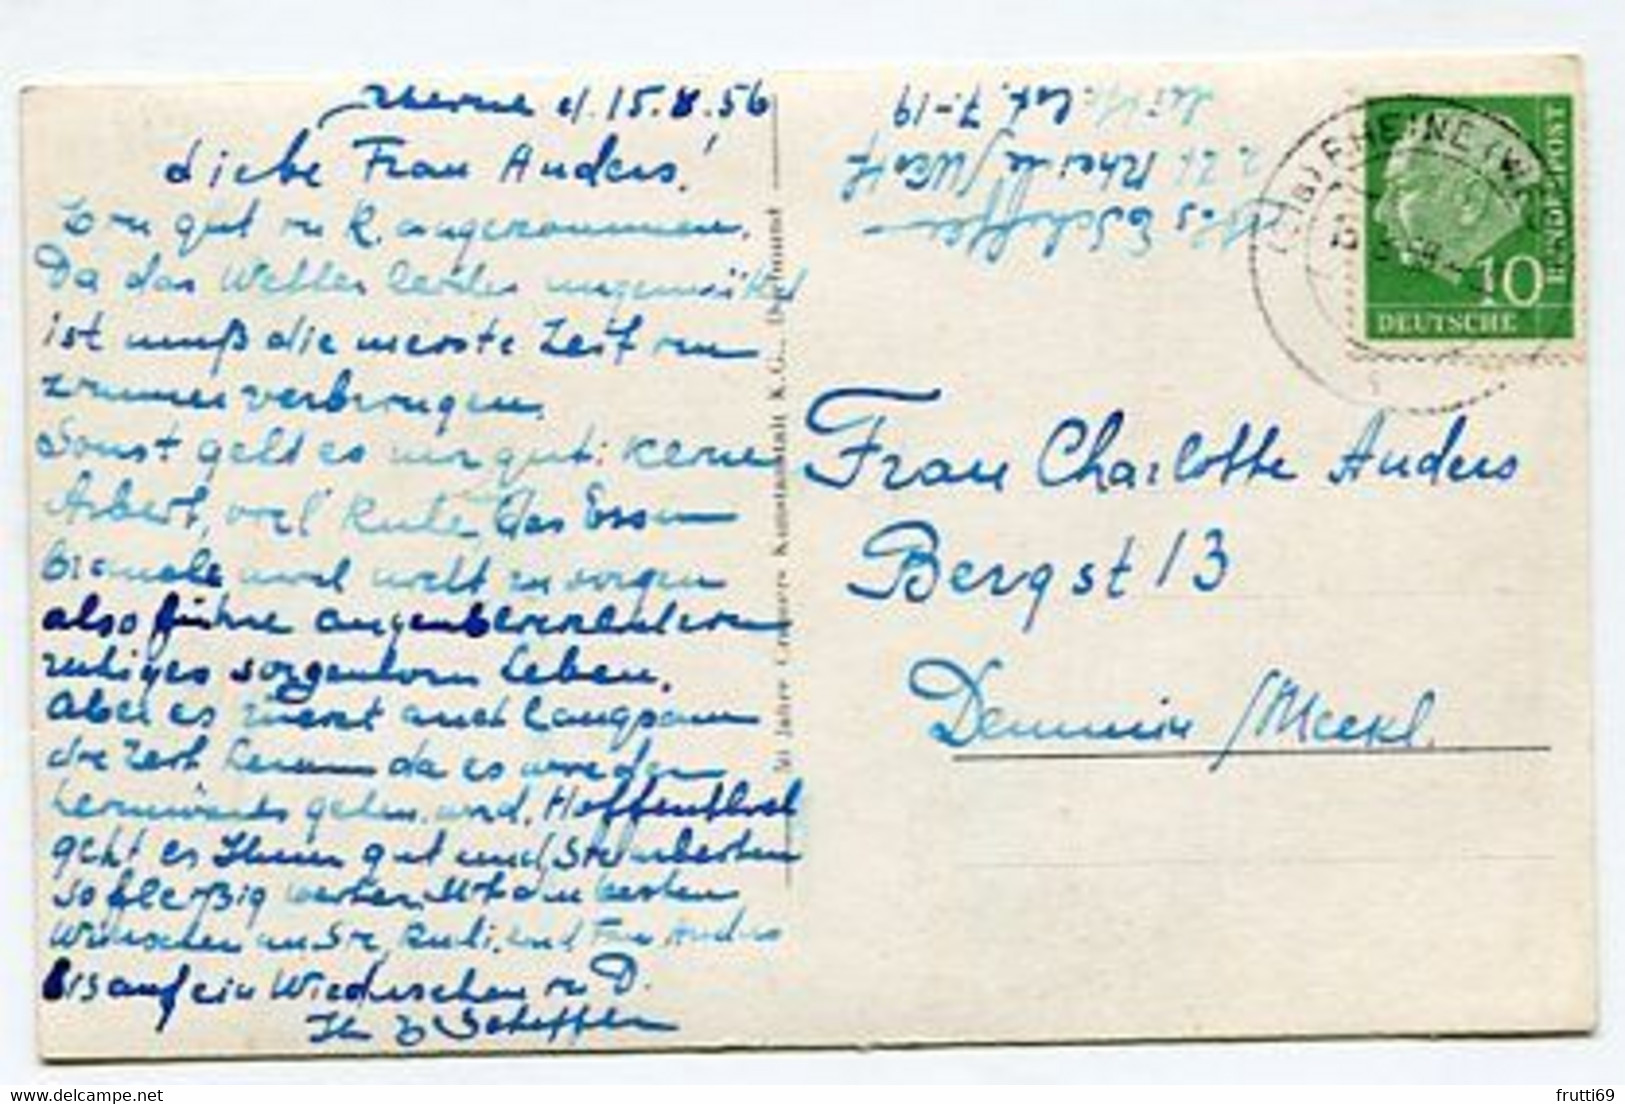 Rheine d. 15.8.56
Liebe Frau Anders!
Bin gut in R. angekommen.
Da das Wetter leider ungemütlich
ist muß die meiste Zeit im
Zimmer verbringen.
Sonst geht es mir gut: keine
Arbeit, viel Ruhe, das Essen
brauche und nicht zu sorgen
also führe augenblicklich ein
ruhiges sorgenlos Leben.
Aber es kommt auch langsam
die Zeit heran da es wieder
heimwärts gehen wird. Hoffentlich
geht es Ihnen gut und Sie
so fleißig weiter. Mit den besten
Wünschen an Sie, Rudi und Frau Anders
bis auf ein Wiedersehen in D.
Ihr B Scheffler
50 Jahre Cramers Kunstanstalt K.G., Dortmund
Abs. Scheffler
z. Zt. Rheine/Westf.
7-19
RHEINE (WESTF
DEUTSCHE
BUNDESPOST
10
Frau Charlotte Anders
Bergst 13
Demmin / Meckl.
delcampe.net
frutti69